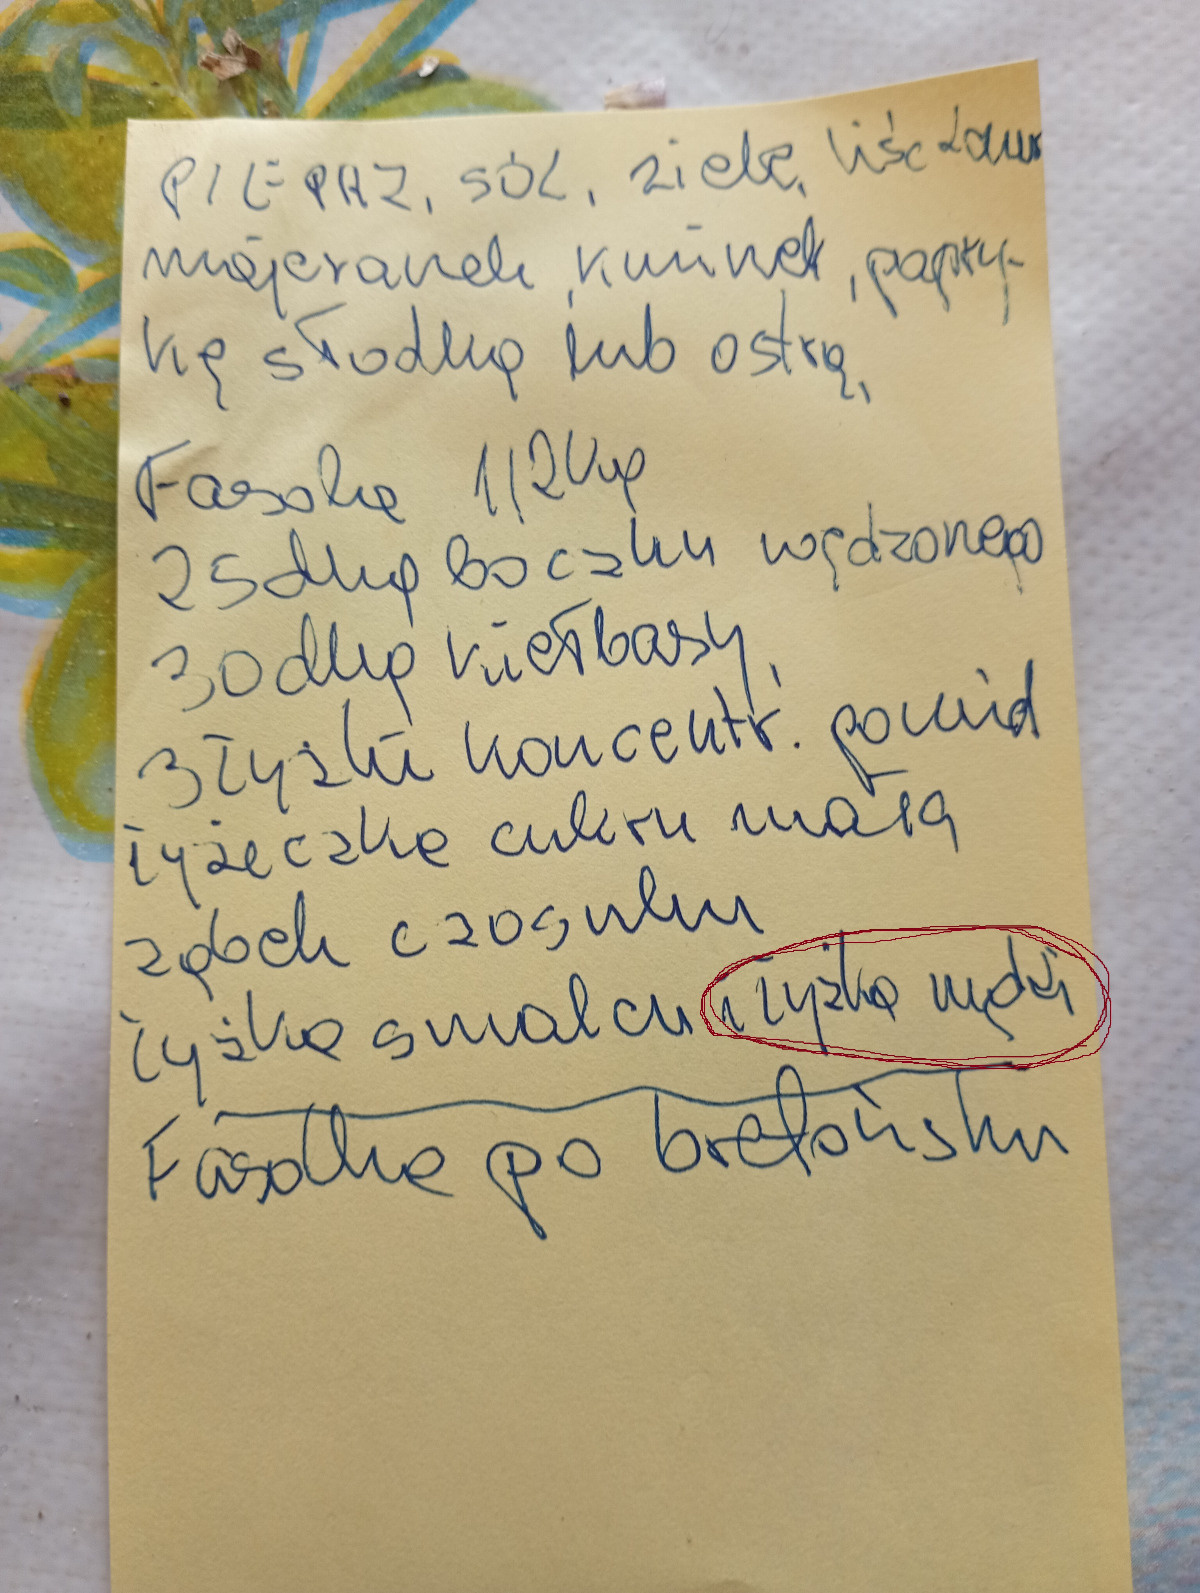 PIEPRZ, SÓL, ziele, liść Laur
májeranek, kminek, papry-
kę słodką lub ostrą,
Fasolkę 1/2 kg
25 dkg boczku wędzonego
30 dkg kiełbasy,
3 łyżki koncentr. pomid
łyżeczkę cukru małą
ząbek czosnku
łyżkę smalcu i łyżkę mąki
Fasolkę po bretońsku